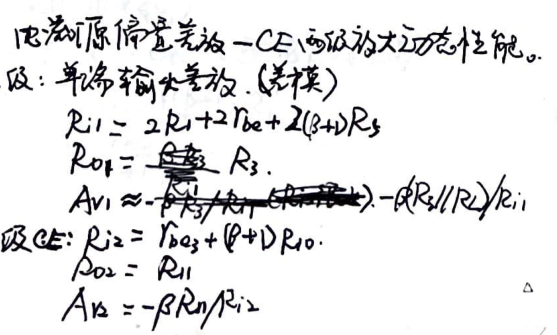 电流源偏置差放—CE两级放大动态性能。
级：单端输出差放.(差模)
Ri1 = 2R1+2rbe+2(β+1)R5
Ro1 = R3.
Av1 ≈ -β(R3//RL)/Ri1
级CE: Ri2 = rbe3+(β+1)R10.
Ro2 = R11
Av2 = -βR11/Ri2